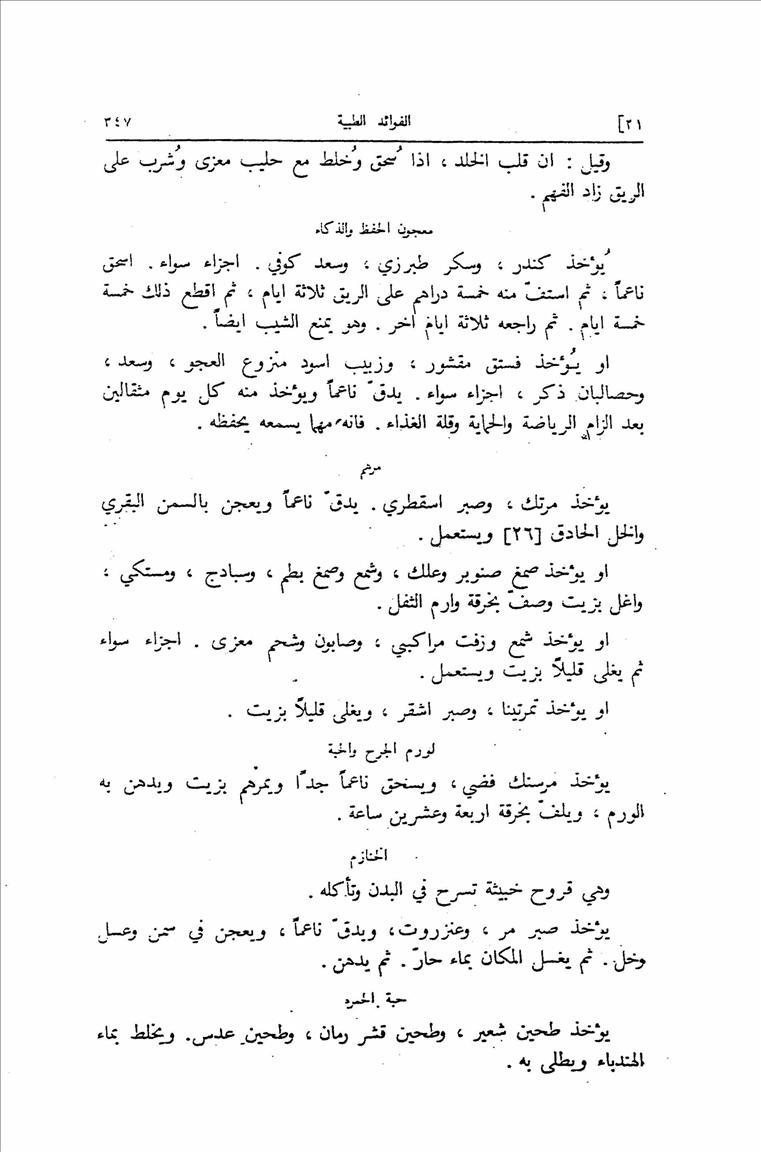 ٢١]
الفوائد الطبية
٣٤٧
وقيل : ان قلب الخلد ، اذا سُحق وخُلط مع حليب معزى وشُرب على
الريق زاد الفهم .
معجون الحفظ والذكاء
يُؤخذ كندر ، وسكر طبرزي ، وسعد كوفي . اجزاء سواء . اسحق
ناعماً ، ثم استفّ منه خمسة دراهم على الريق ثلاثة ايام ، ثم اقطع ذلك خمسة
خمسة ايام . ثم راجعه ثلاثة ايام اخر . وهو يمنع الشيب ايضاً .
او يُؤخذ فستق مقشور ، وزبيب اسود منزوع العجو ، وسعد ،
وحصالبان ذكر ، اجزاء سواء . يدقّ ناعماً ويؤخذ منه كل يوم مثقالين
بعد الزام الرياضة والحماية وقلة الغذاء . فانه مهما يسمعه يحفظه .
مرهم
يؤخذ مرتك ، وصبر اسقطري . يدقّ ناعماً ويعجن بالسمن البقري
والخل الحاذق [٢٦] ويستعمل .
او يؤخذ صمغ صنوبر وعلك ، وشمع وصمغ بطم ، وسبادج ، ومستكي ،
واغل بزيت وصفّ بخرقة وارم الثفل .
او يؤخذ شمع وزفت مراكبي ، وصابون وشحم معزى . اجزاء سواء
ثم يغلى قليلاً بزيت ويستعمل .
او يؤخذ تمرتينا ، وصبر اشقر ، ويغلى قليلاً بزيت .
لورم الجرح والحبة
يؤخذ مرسنك فضي ، ويسحق ناعماً جداً ويمرهم بزيت ويدهن به
الورم ، ويلفّ بخرقة اربعة وعشرين ساعة .
الخنازم
وهي قروح خبيثة تسرح في البدن وتأكله .
يؤخذ صبر مر ، وعنزروت ، ويدقّ ناعماً ، ويعجن في سمن وعسل
وخل . ثم يغسل المكان بماء حارّ . ثم يدهن .
حبة الحمره
يؤخذ طحين شعير ، وطحين قشر رمان ، وطحين عدس . ويخلط بماء
الهندباء ويطلى به .